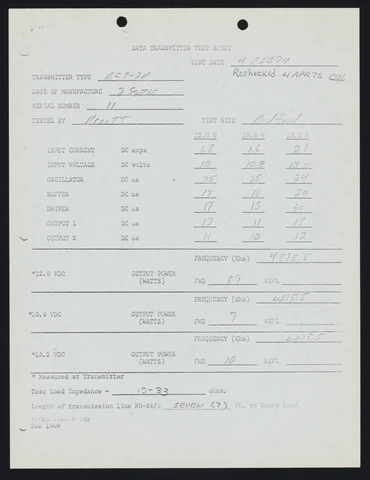 DATA TRANSMITTER TEST SHEET
TEST DATE 4 FEB74
Rechecked 4 APR 74
TRANSMITTER TYPE
DATE OF MANUFACTURE
SERIAL NUMBER 11
TESTED BY TEST SITE Bedford
12.0 V 10.8 V 13.2 V
INPUT CURRENT DC amps 1.8 1.6 2.1
INPUT VOLTAGE DC volts 12 10.8 13.2
OSCILLATOR DC ua 25 25 24
BUFFER DC ua 19 18 20
DRIVER DC ua 17 15 20
OUTPUT 1 DC ua 12 11 13
OUTPUT 2 DC ua 11 10 12
FREQUENCY (Khz) 4895.5
*12.0 VDC OUTPUT POWER FWD 8.9 REFL
(WATTS)
FREQUENCY (Khz)
*10.8 VDC OUTPUT POWER FWD 7 REFL
(WATTS)
FREQUENCY (Khz)
*13.2 VDC OUTPUT POWER FWD 10 REFL
(WATTS)
* Measured at Transmitter
Test Load Impedence - ohms.
Length of transmission line RG-58/u SEVEN (7) ft. to Dummy Load.
Feb 1969